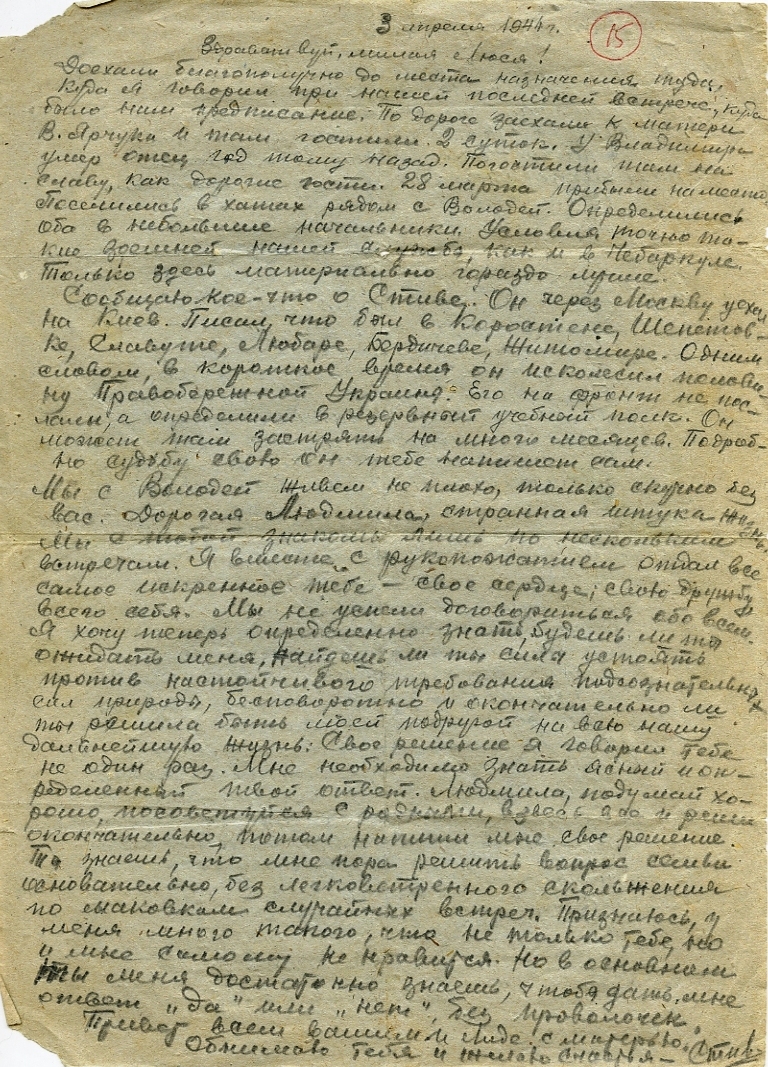 3 апреля 1944 г.
15
Здравствуй, милая Люся!
Доехали благополучно до места назначения туда,
куда я говорил при нашей последней встрече, куда
было нам предписание. По дороге заехали к матери
В. Ярчука и там гостили 2 суток. У Владимира
умер отец год тому назад. Погостили там на
славу, как дорогие гости. 28 марта прибыли на место.
Поселились в хатах рядом с Володей. Определились
оба в небольшие начальники. Условия точно та-
кие здешней нашей службы, как и в Чебаркуле.
Только здесь материально гораздо лучше.
Сообщаю кое-что о Стиве. Он через Москву уехал
на Киев. Писал, что был в Коростене, Шепетов-
ке, Славуте, Любаре, Бердичеве, Житомире. Одним
словом, в короткое время он исколесил полови-
ну Правобережной Украины. Его на фронт не пос-
лали, а определили в резервный учебный полк. Он
может там застрять на много месяцев. Подроб-
но судьбу свою он тебе напишет сам.
Мы с Володей живем не плохо, только скучно без
вас. Дорогая Людмила, странная штука жизнь.
Мы с тобой знакомы лишь по нескольким
встречам. Я вместе с рукопожатием отдал все
самое искреннее тебе – свое сердце, свою дружбу
всего себя. Мы не успели договориться обо всем.
Я хочу теперь определенно знать, будешь ли ты
ожидать меня, найдешь ли ты сила устоять
против настойчивого требования подсознательных
сил природы, бесповоротно и окончательно ли
ты решила быть моей подругой на всю нашу
дальнейшую жизнь. Свое решение я говорил тебе
не один раз. Мне необходимо знать ясный и оп-
ределенный твой ответ. Людмила, подумай хо-
рошо, посоветуйся с родными, взвесь все и реши
окончательно, потом напиши мне свое решение.
Ты знаешь, что мне пора решить вопрос семьи
основательно, без легковетренного скольжения
по маковкам случайных встреч. Признаюсь, у
меня много такого, что не только тебе, но
и мне самому не нравится. Но в основном
ты меня достаточно знаешь, чтоб дать мне
ответ "да" или "нет", без проволочек.
Привет всем вашим и Лиде с матерью.
Обнимаю тебя и желаю счастья –